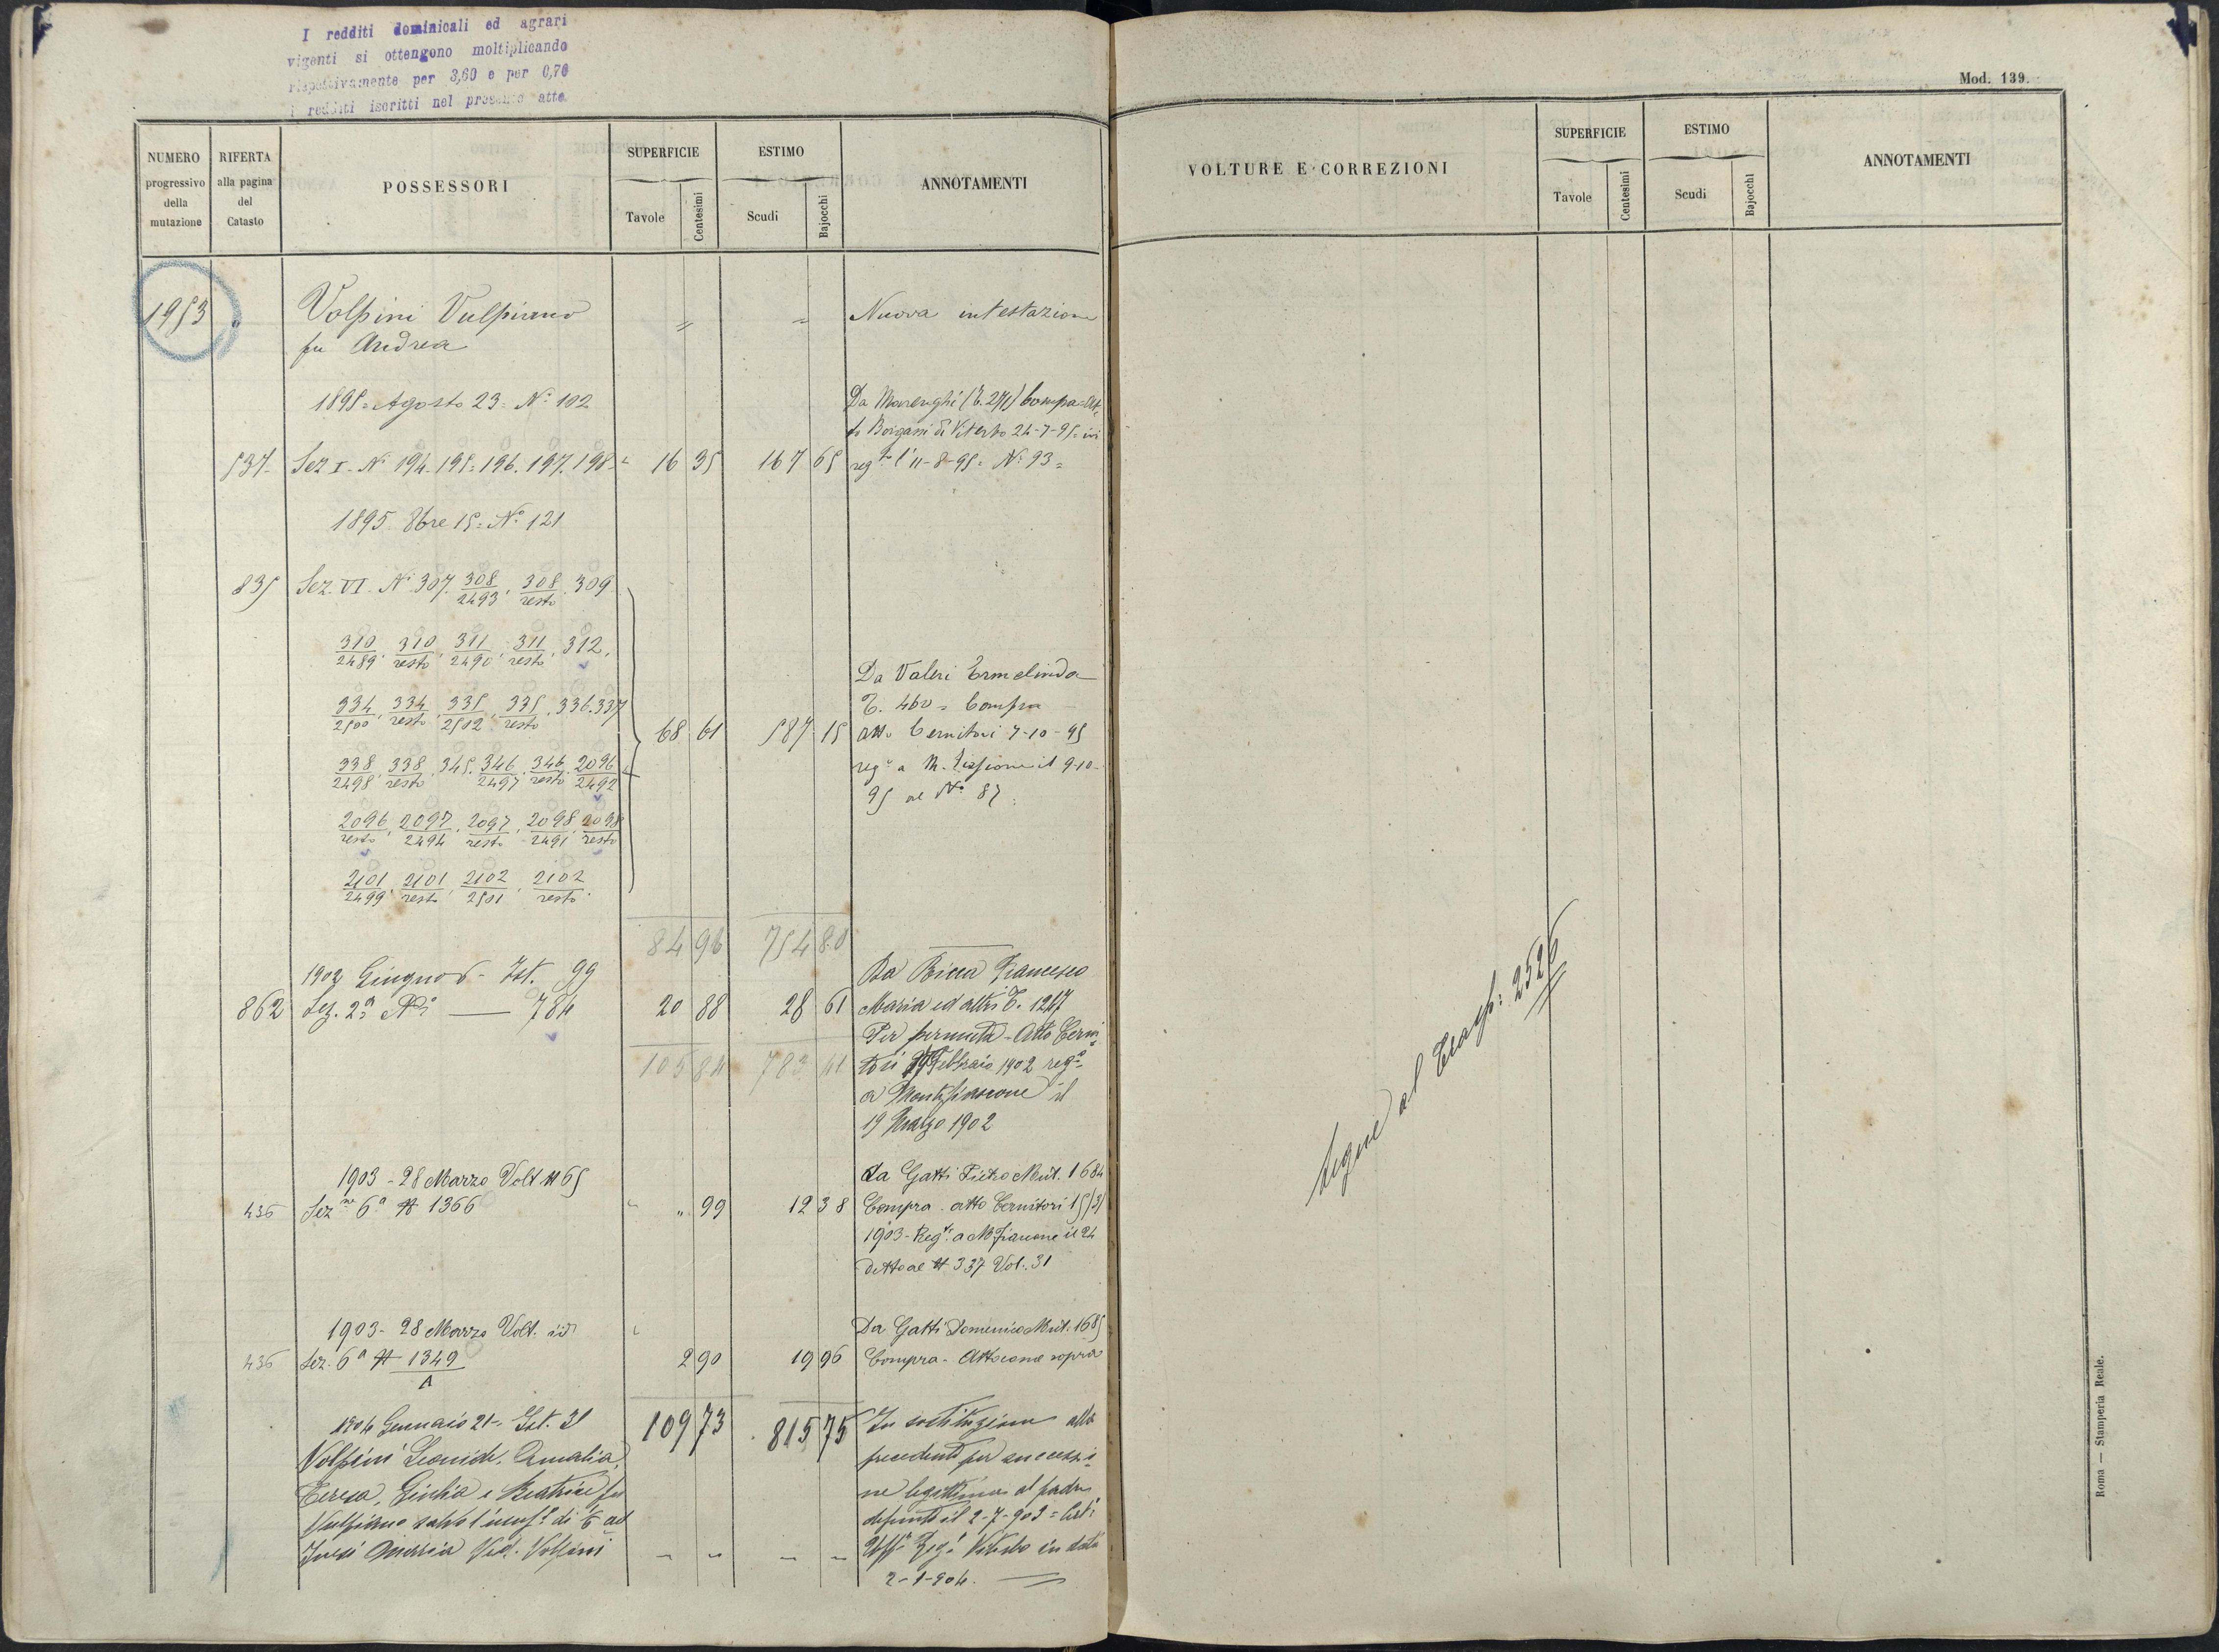 I redditi dominicali ed agrari
vigenti si ottengono moltiplicando
rispettivamente per 3,60 e per 0,70
i redditi iscritti nel presente atto.
Mod. 139.
NUMERO progressivo della mutazione
RIFERTA alla pagina del Catasto
POSSESSORI
SUPERFICIE
Tavole Centesimi
ESTIMO
Scudi Bajocchi
ANNOTAMENTI
1953 Volpini Vulpiano = = Nuova intestazione
fu Andrea
1895 = Agosto 23 = N° 102
Da Marenghi
Compra = Att
to Borgassi di Viterbo 24-7-95 = ivi
537 Sez I - N° 194. 195 = 196. 197. 198 16 35 167 65 reg to l'11-8-95 = N° 93 =
1895 8bre 15 = N° 121
835 Sez. VI - N° 307. 308/2493, 308/resto. 309
310/2489, 310/resto, 311/2490, 311/resto, 312,
334/2500, 334/resto, 335/2502, 335/resto, 336. 337
338/2498, 338/resto, 345. 346/2497, 346/resto, 2096/2492
2096/resto, 2097/2494, 2097/resto, 2098/2491, 2098/resto
2101/2499, 2101/resto, 2102/2501, 2102/resto.
68 61 587 15
Da Valeri Ermelinda
T. 460 = Compra
atto Cernitori 7-10-95
reg° a M. fiascone il 9-10-
95 al N° 87
84 96 754 80
1902 Giugno 5 - Ist. 99
Da Ricca Francesco
862 Sez. 2ª N° — 784 20 88 28 61 Maria ed altri T. 1247
Per permuta - Atto Cerni
105 84 783 41 tori 27 Febbraio 1902 reg°
a Montefiascone il
19 Marzo 1902
1903 - 28 Marzo Volt N 65
da Gatti Pietro Mut. 1684
436 Sez ne 6ª N 1366 " 99 12 38 Compra - atto Cernitori 15/3/
1903 - Reg to a M Fiascone il 24
detto al N 337 Vol. 31
1903 - 28 Marzo Volt. id
Da Gatti Domenico Mut. 1685
436 Sez. 6ª N 1349/A 2 90 19 96 Compra - Atto come sopra
1904 Gennaio 21 - Ist. 31 109 73 815 75 In sostituzione alla
Volpini Leonide, Amalia, precedente per successio
Teresa, Giulia e Beatrice fu ne legittima al padre
Vulpiano salvo l'usuf° di 1/6 ad defunto il 2-7-903 =
Ved. Volpini Uff° Reg° Viterbo in data
2-1-904.
VOLTURE E CORREZIONI
SUPERFICIE
Tavole Centesimi
ESTIMO
Scudi Bajocchi
ANNOTAMENTI
segue al 2526
Roma — Stamperia Reale.